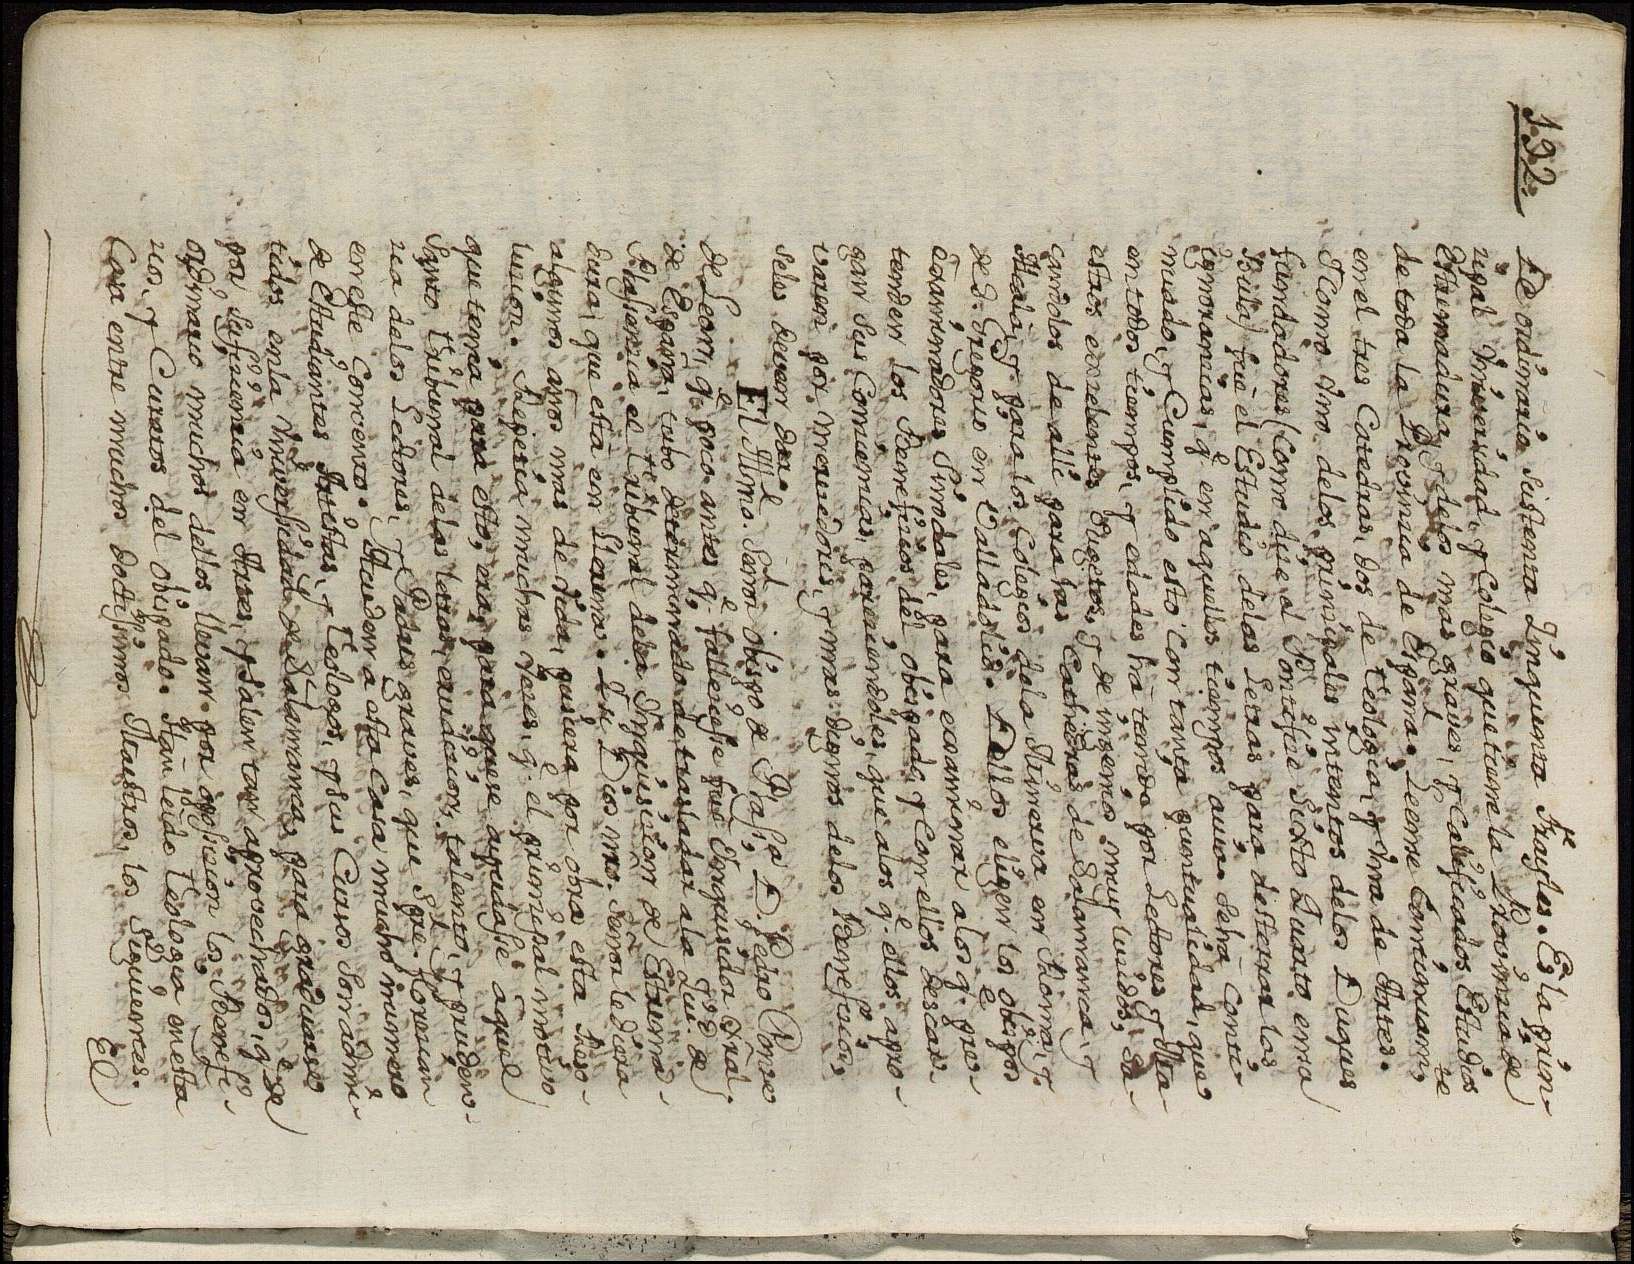 192.
De ordinario sustenta Cinquenta Frayles. Es la prin-
cipal Universidad, y Colegio que tiene la Provincia de
Estremadura, y de los mas graves, y Calificados Estudios
de toda la Provincia de España. Leense Comunmen.te
en el tres Catedras, dos de Teologia, y una de Artes.
Y Como Uno de los principales intentos de los Duques
fundadores (Como dije el Pontifice Sixto Quarto en su
Bula) fue el Estudio de las Letras para desterrar las
ignorancias, q.e en aquellos tiempos avia. Se ha conti-
nuado, y Cumplido esto Con tanta puntualidad, que
en todos tiempos, y edades ha tenido por Lectores y Ma-
estros excelentes Sugetos, y de ingenios muy lucidos, sa-
candolos de alli para las Cathedras de Salamanca, y
Alcala, y para los Colegios de la Minerva en Roma, y
de S. Gregorio en Valladolid. Dellos eligen los obispos
examinadores Sinodales, para examinar a los q.e pre-
tenden los Beneficios del obispado, y Con ellos descar-
gan sus Conciencias, pareciendoles, que a los q.e ellos apro-
varen por merecedores, y mas dignos de los Beneficios,
se les deven dar.
El Ill.mo Señor obispo de Plas.a D. Pedro Ponze
de Leon, q.e poco antes q.e falleciesse fue Inquisidor Gral.
de España, tubo determinado de trasladar a la Ciu.d de
Plasencia el Tribunal de la S.ta Inquisicion de Estrema-
dura, que esta en Llerena. Si Dios nro. Señor le diera
algunos años mas de vida, pusiera por obra esta reso-
lucion. Repetia muchas veces, q.e el principal motivo
que tenia para esto, era, para que se ayudasse aquel
Santo Tribunal de las letras, erudicion, talento, y pruden-
cia de los Lectores, y Padres graves, que Spre. florecian
en este Convento. Acuden a esta Casa mucho numero
de Estudiantes Artistas, y Teologos, y sus Cursos son admi-
tidos en la Universidad de Salamanca, para graduarse
por Suficiencia en Artes, y salen tan aprovechados, q.e de
ordinario muchos dellos llevan por oposicion los Benefi-
cios, y Curatos del obispado. Han leido Teologia en esta
Casa entre muchos doctissimos Maestros, los Siguientes.
El